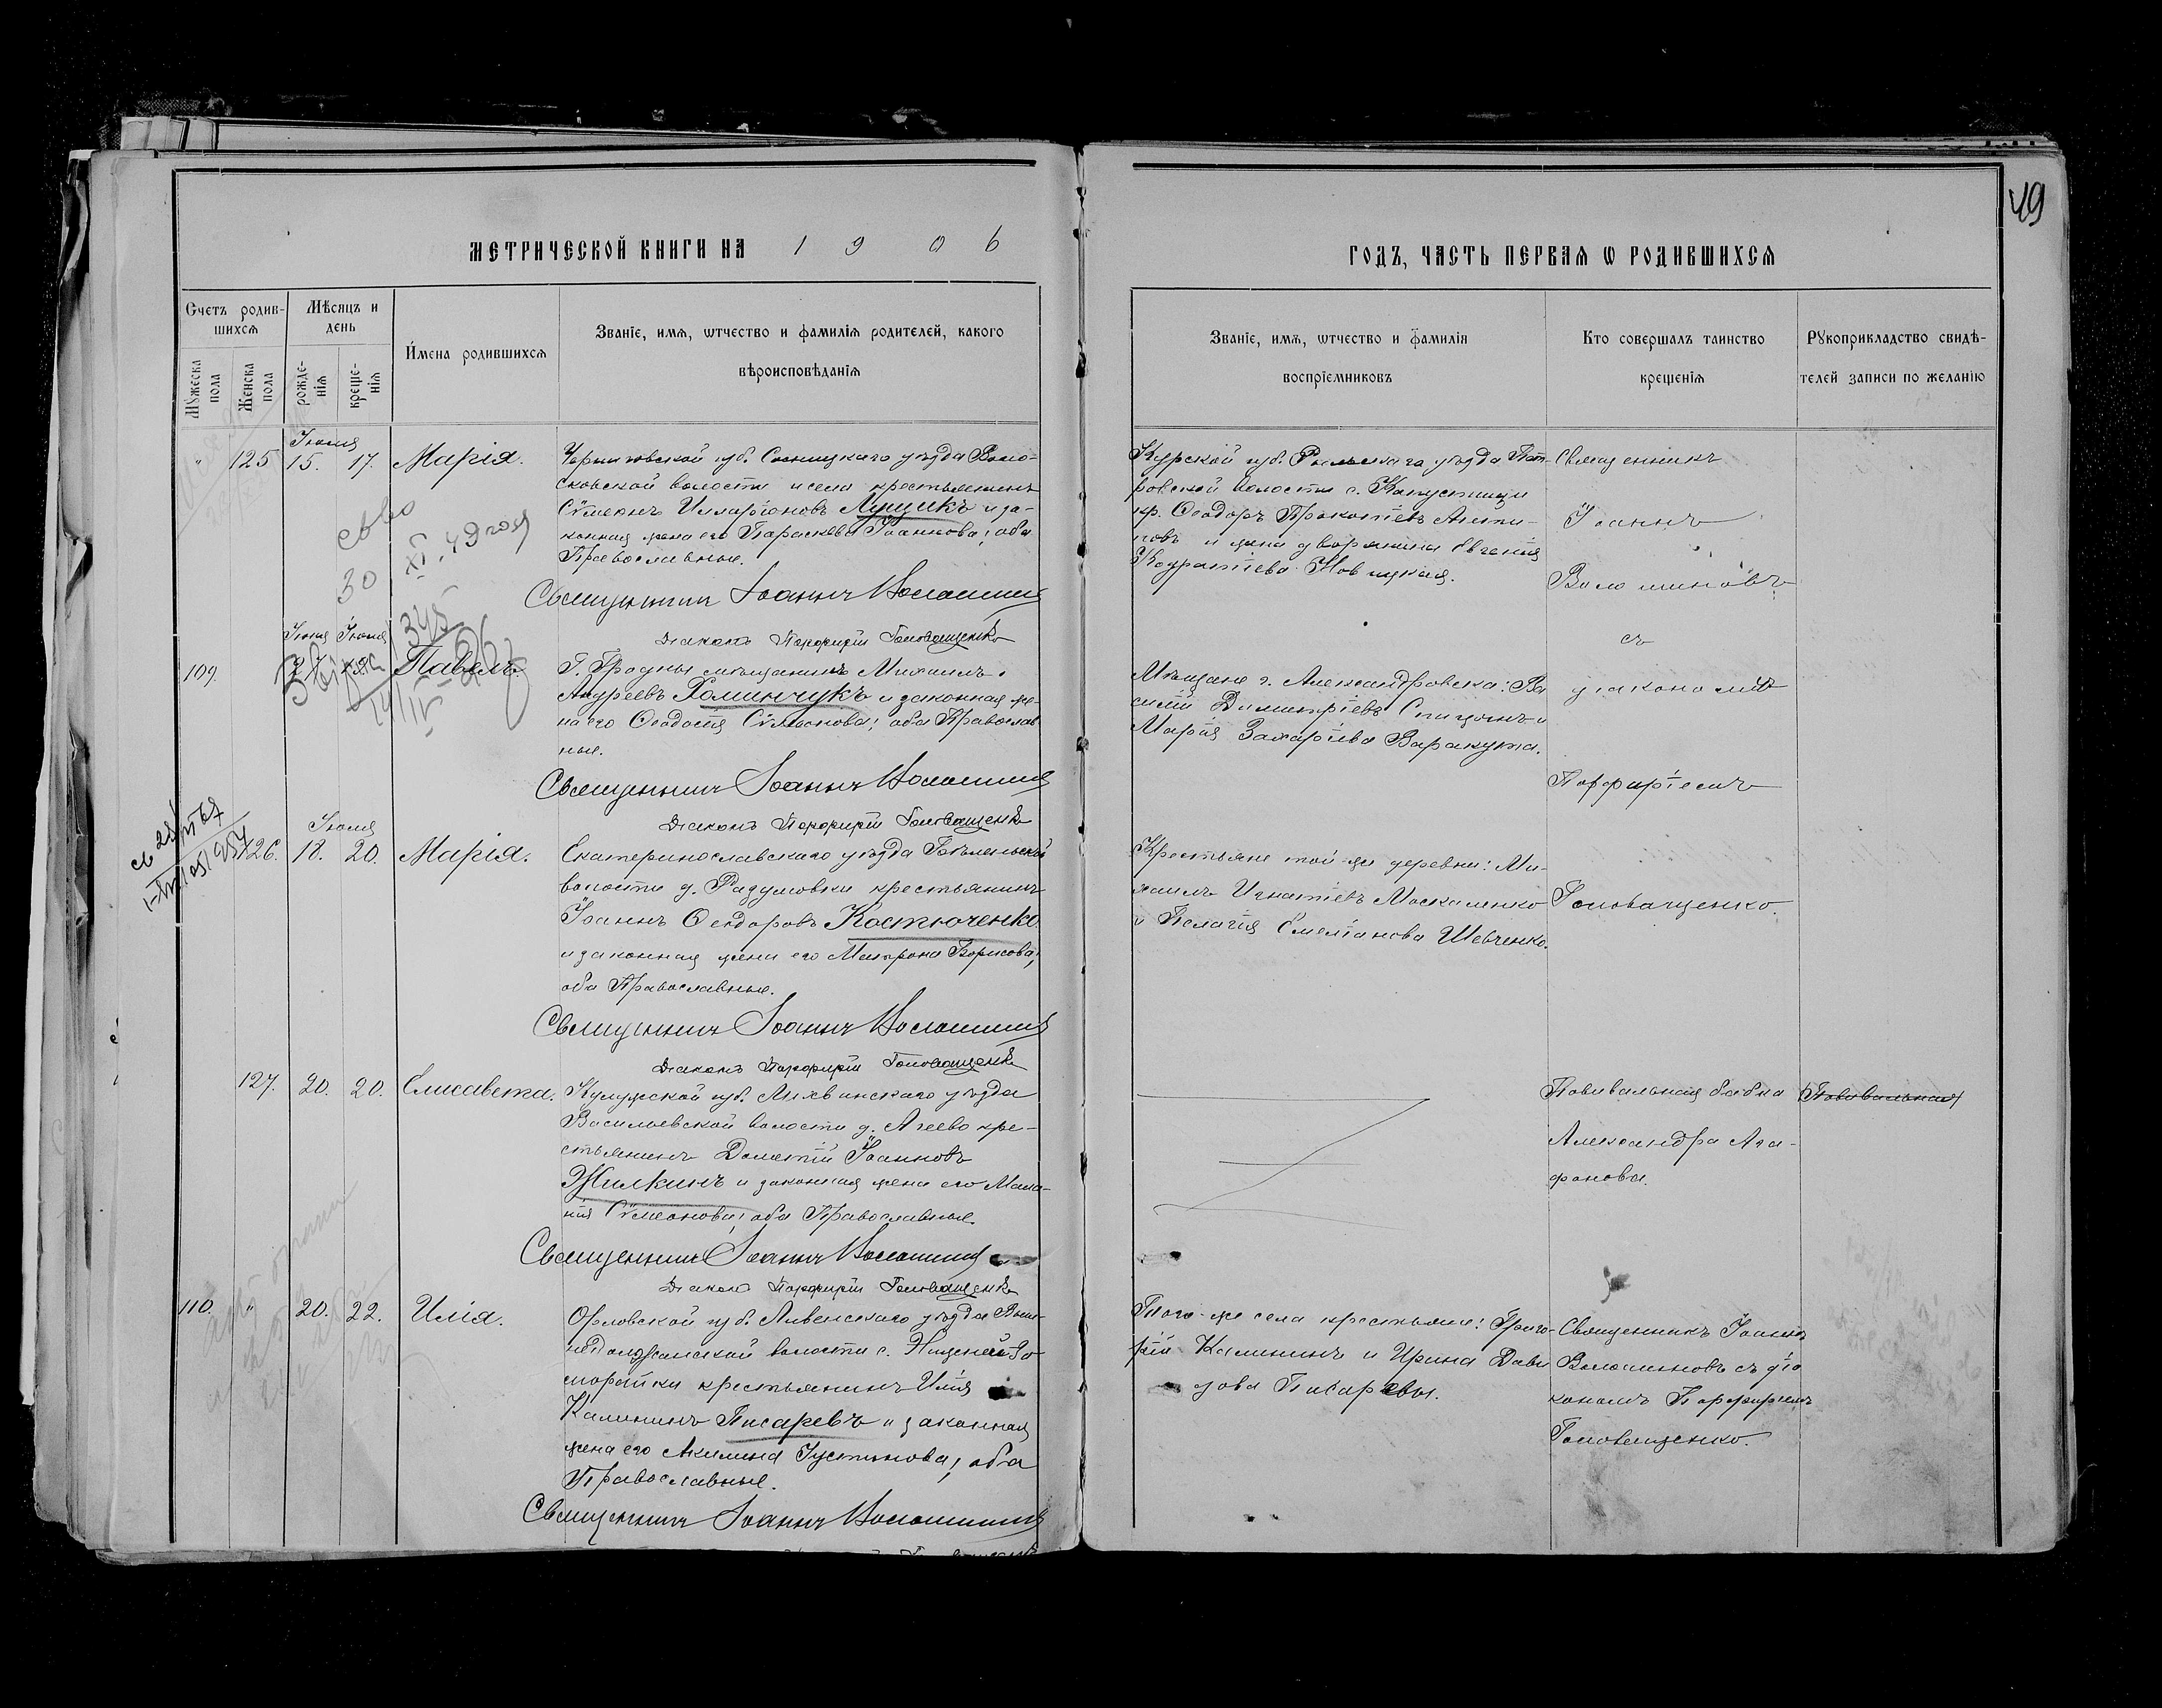 49
МЕТРИЧЕСКОЙ КНИГИ НА 1906
ГОДЪ, ЧАСТЬ ПЕРВАЯ Ѡ РОДИВШИХСЯ
Счетъ родив-
шихся
Мужеска
пола
Женска
пола
Мѣсяцъ и
день
рожде-
нія
креще-
нія
Имена родившихся
Званіе, имя, ѡтчество и фамилія родителей, какого
вѣроисповѣданія
Званіе, имя, ѡтчество и фамилія
воспріемниковъ
Кто совершалъ таинство
крещенія
Рукоприкладство свидѣ-
телей записи по желанію
" 125 15. 17. Марія.
Черниговской губ. Сосницкаго уѣзда Воло-
сковской волости и села крестьянинъ
Сѵмеонъ Илларіоновъ Лущикъ и за-
конная жена его Параскева Іоаннова; оба
Православные.
Священникъ Іоаннъ Волошиновъ
Діаконъ Порфирій Головащенко
Курской губ. Рыльскаго уѣзда
ровской волости с. Капустищи
кр. Ѳеодоръ Прокопіевъ
и жена дворянина Евгенія
Кодратіева Новицкая.
Священникъ
Іоаннъ
Волошиновъ
съ
діакономъ
Порфиріемъ
Головащенко.
109. Павелъ.
Г. Гродны мѣщанинъ Михаилъ
Андреевъ Роминчукъ и законная же-
на его Ѳеодосія Сѵмеонова; оба Православ-
ные.
Священникъ Іоаннъ Волошиновъ
Діаконъ Порфирій Головащенко
Мѣщане г. Александровска: Ва-
силій Димитріевъ Спицынъ и
Марія Захаріева Варакута.
Іюля
126. 18. 20. Марія.
Екатеринославскаго уѣзда
волости д. Радумовки крестьянинъ
Іоаннъ Ѳеодоровъ Костюченко
и законная жена его Матрона Борисова;
оба Православные.
Священникъ Іоаннъ Волошиновъ
Діаконъ Порфирій Головащенко
Крестьяне той-же деревни: Ми-
хаилъ Игнатіевъ Москаленко
и Пелагія Емеліанова Шевченко.
127. 20. 20. Елисавета.
Калужской губ. Лихвинскаго уѣзда
Васильевской волости д. Агеево кре-
стьянинъ Дометій Іоанновъ
Жилкинъ и законная жена его Мала-
нія Сѵмеонова; оба Православные.
Священникъ Іоаннъ Волошиновъ
Діаконъ Порфирій Головащенко
Повивальная бабка
Александра Ага-
фонова.
Повивальная
110. " 20. 22. Илія.
Орловской губ. Ливенскаго уѣзда Выш-
недолжанской волости с.
крестьянинъ Илія
Калининъ Писаревъ и законная
жена его Акилина Іустинова; оба
Православные.
Священникъ Іоаннъ Волошиновъ
Того-же села крестьяне: Григо-
рій Калининъ и Ирина Дави-
дова Писаревы.
Священникъ Іоаннъ
Волошиновъ съ діа-
кономъ Порфиріемъ
Головащенко.